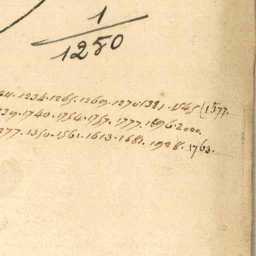 1
1250
1234. 1265. 1269. 1270. 1321. 1545 (1577.
1740. 1754. 1757. 1777. 1896. 2000.
1277. 1350. 1561. 1613. 1681. 1928. 1763.